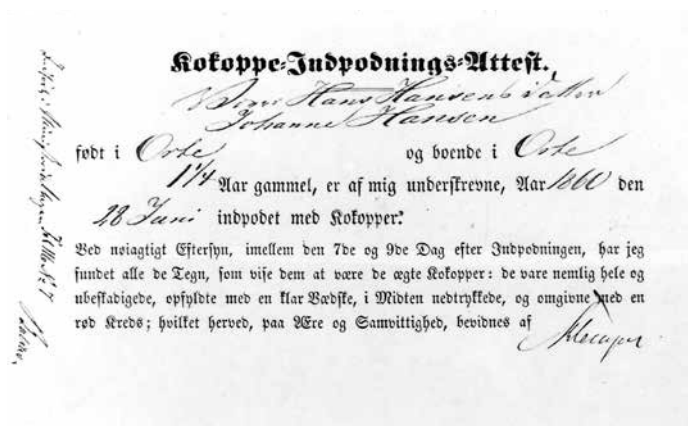 Kokoppe-Indpodnings-Attest.
Hans Hansens Datter
Johanne Hansen
født i Orte og boende i Orte
1 1/4 Aar gammel, er af mig underskrevne, Aar 1860 den
28 Juni indpodet med Kokopper:
Ved nøiagtigt Eftersyn, imellem den 7de og 9de Dag efter Indpodningen, har jeg
fundet alle de Tegn, som vise dem at være de ægte Kokopper: de vare nemlig hele og
ubeskadigede, opfyldte med en klar Vædske, i Midten nedtrykkede, og omgivne med en
rød Kreds; hvilket herved, paa Ære og Samvittighed, bevidnes af